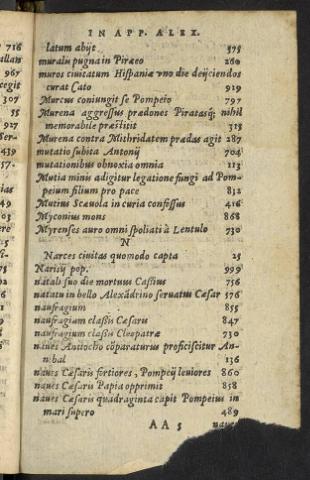 IN APP. ALEX.
latum abijt 575
muralis pugna in Piræeo 260
muros ciuitatum Hispaniæ vno die deijciendos
curat Cato 929
Murcus coniungit se Pompeio 797
Murena aggressus prædones Piratasq; nihil
memorabile præstitit 315
Murena contra Mithridatem prædas agit 287
mutatio subita Antonij 704
mutationibus obnoxia omnia 113
Mutia minis adigitur legatione fungi ad Pom-
peium filium pro pace 832
Mutius Scæuola in curia confossus 416
Myconius mons 868
Myrenses auro omni spoliati à Lentulo 730
N
Narces ciuitas quomodo capta 25
Narisij pop. 999
natali suo die mortuus Cassius 756
natatu in bello Alexãdrino seruatus Cæsar 576
naufragium 855
naufragium classis Cæsaris 847
naufragium classis Cleopatræ 730
naues Antiocho cõparaturus proficiscitur An-
nibal 136
naues Cæsaris fortiores, Pompeij leuiores 860
naues Cæsaris Papia opprimit 858
naues Cæsaris quadraginta capit Pompeius in
mari supero 489
AA 5 naues
716
967
cegit
307
55
927
439
57-